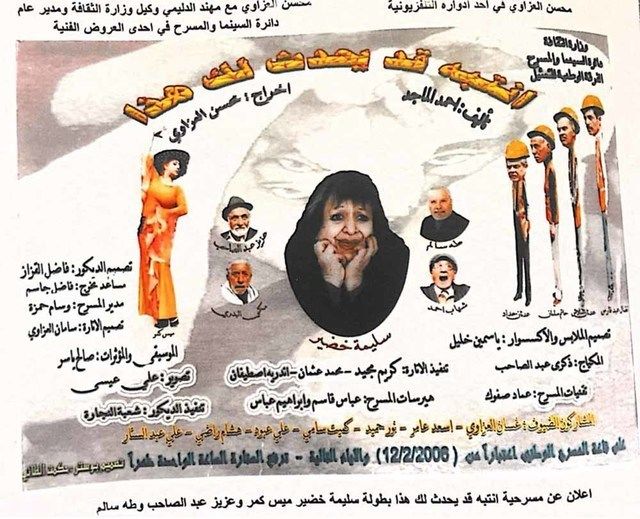 محسن العزاوي في احد ادواره التلفزيونية
محسن العزاوي مع مهند الدليمي وكيل وزارة الثقافة ومدير عام
دائرة السينما والمسرح في احدى العروض الفنية
وزارة الثقافة
دائرة السينما والمسرح
الفرقة الوطنية للتمثيل
انتبه قد يحدث لك هذا
تأليف: احمد الماجد
اخراج: محسن العزاوي
طه سالم
عزيز عبد الصاحب
شهاب احمد
مكي البدري
ميس كمر
سليمة خضير
تصميم الديكور: فاضل القزاز
مساعد مخرج: فاضل جاسم
مدير المسرح: وسام حمزة
تصميم الانارة: سامان العزاوي
الموسيقى والمؤثرات: صالح ياسر
تصوير: علي عيسى
تنفيذ الديكور: شعبة النجارة
تصميم الملابس والاكسسوار: ياسمين خليل
المكياج: ذكرى عبد الصاحب
تقنيات المسرح: عماد صفوك
تنفيذ الانارة: كريم مجيد - محمد عثمان - اندريه اصطيفان
هيرسات المسرح: عباس قاسم وابراهيم عباس
المشاركون الضيوف: غسان العزاوي - اسعد عامر - نور حميد - كميت سامي - علي عبره - هشام راضي - علي عبد الستار
على قاعة المسرح الوطني اعتباراً من (12/2/2006) والايام التالية - ترفع الستارة الساعة الواحدة ظهراً
اعلان عن مسرحية انتبه قد يحدث لك هذا بطولة سليمة خضير ميس كمر وعزيز عبد الصاحب وطه سالم